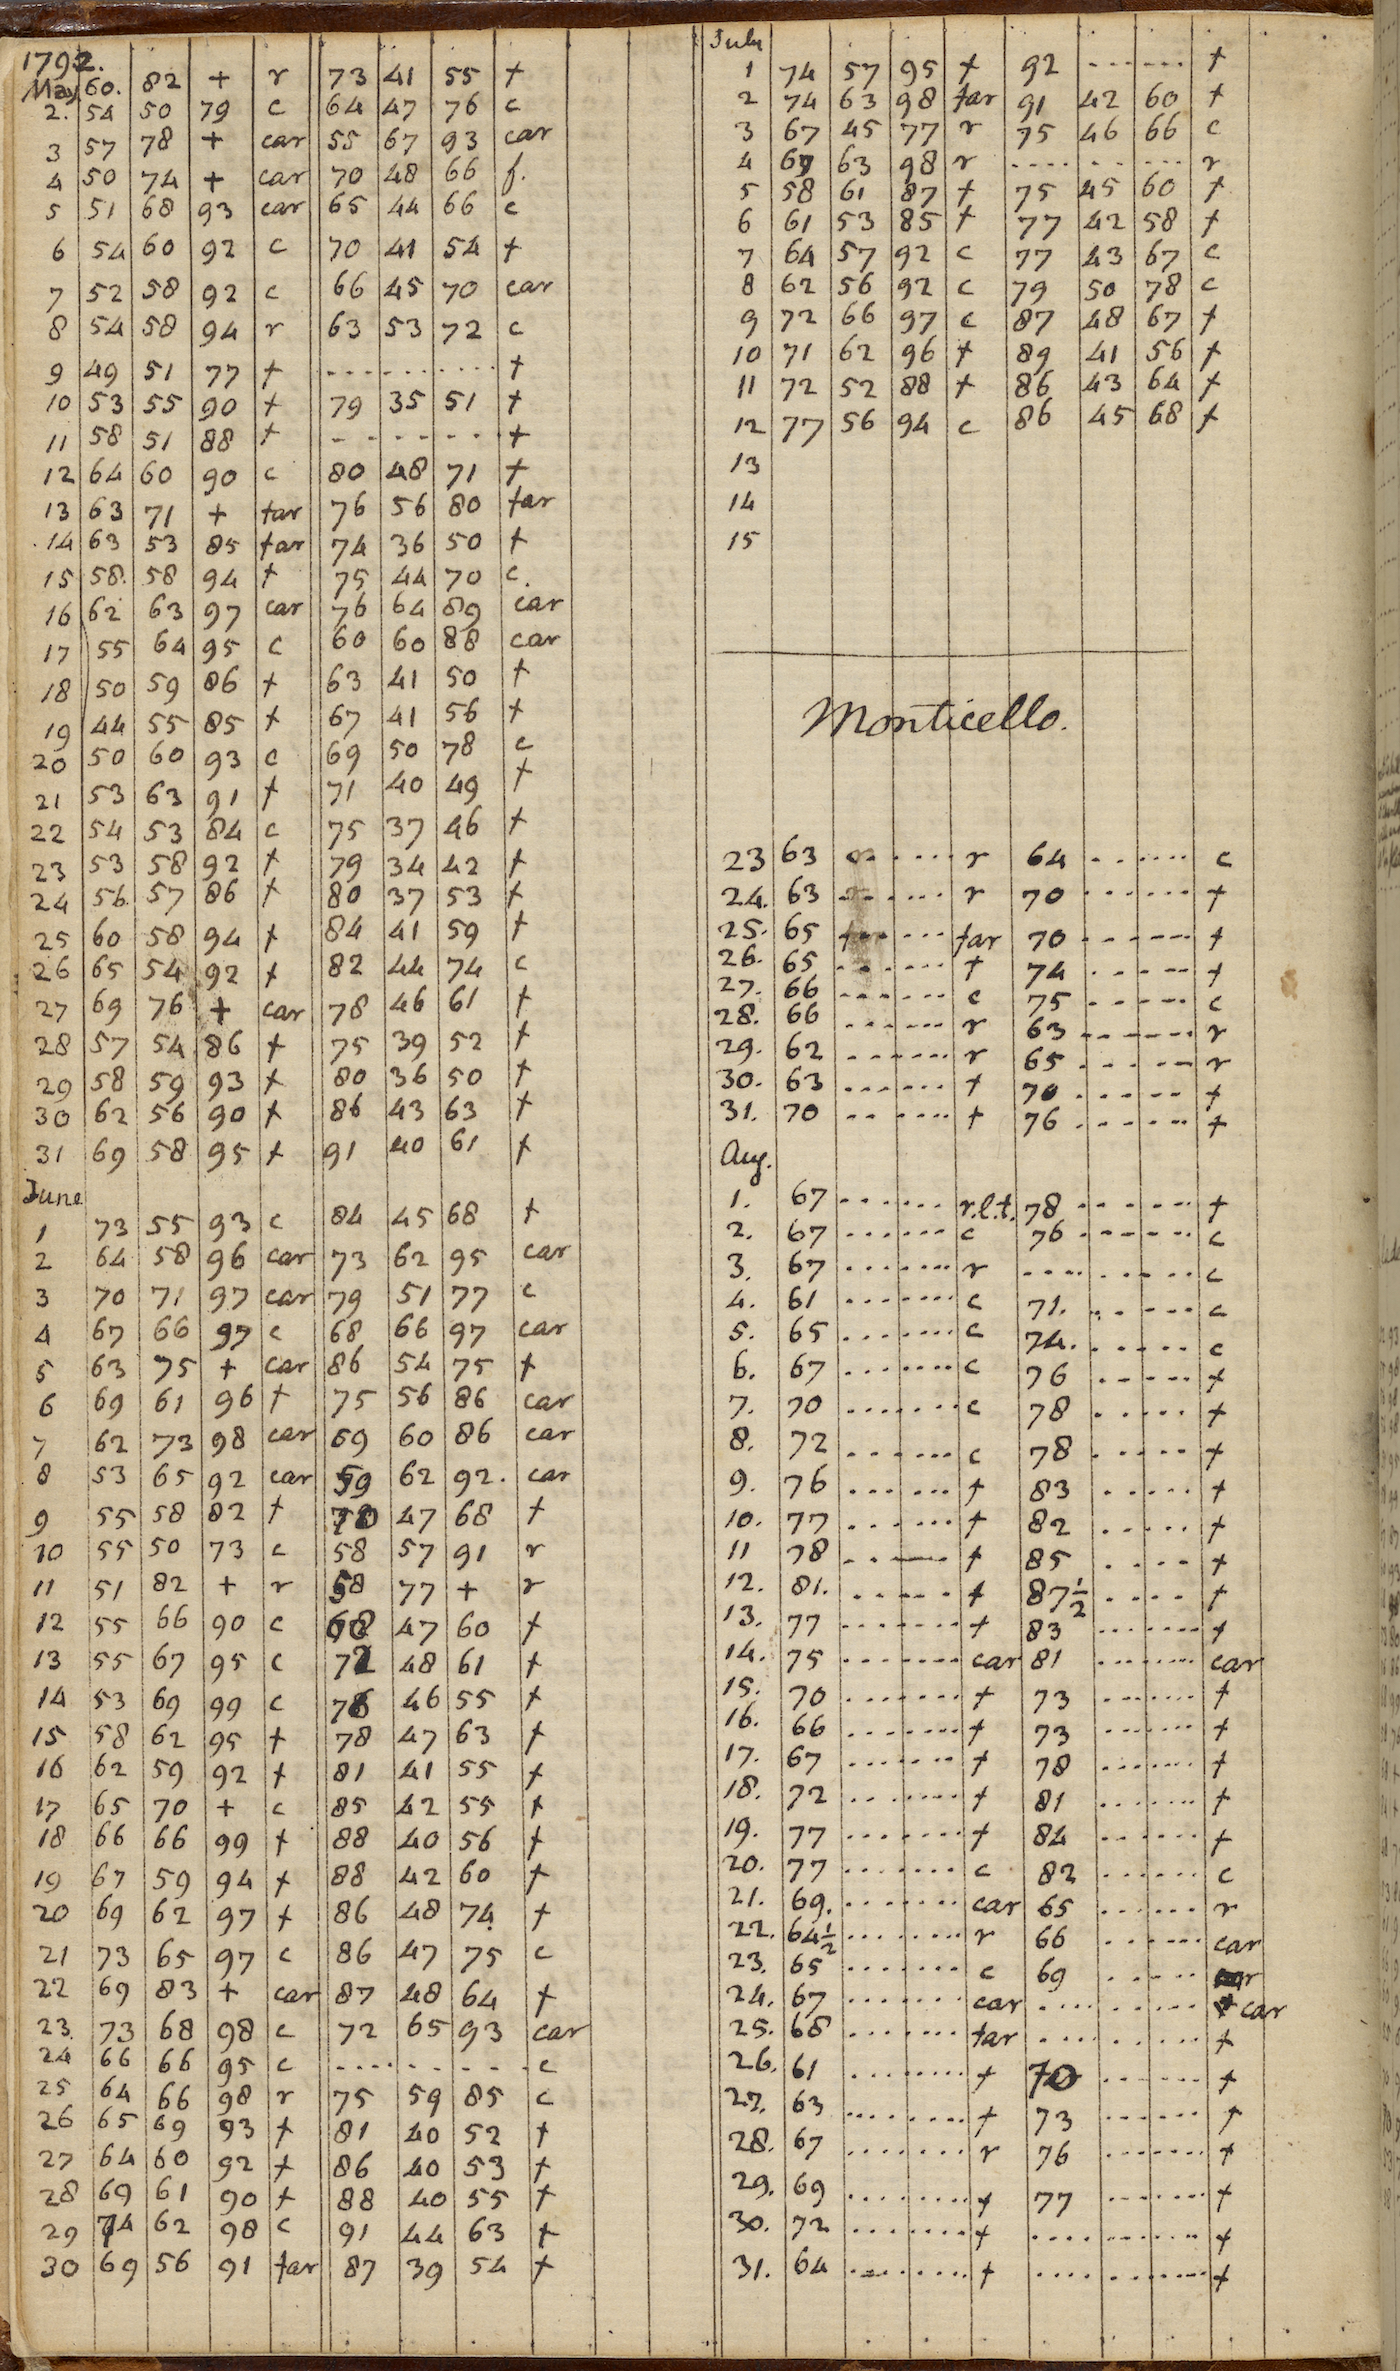 1792.
May 60. 82 + r 73 41 55 +
2. 54 50 79 c 64 47 76 c
3 57 78 + car 55 67 93 car
4 50 74 + car 70 48 66 f.
5 51 68 93 car 65 44 66 c
6 54 60 92 c 70 41 54 +
7 52 58 92 c 66 45 70 car
8 54 58 94 r 63 53 72 c
9 49 51 77 + - - - - - - - - - - +
10 53 55 90 + 79 35 51 +
11 58 51 88 + - - - - - - - - +
12 64 60 90 c 80 48 71 +
13 63 71 + far 76 56 80 far
14 63 53 85 far 74 36 50 +
15 58. 58 94 + 75 44 70 c.
16 62 63 97 car 76 64 89 car
17 55 64 95 c 60 60 88 car
18 50 59 86 + 63 41 50 +
19 44 55 85 + 67 41 56 +
20 50 60 93 c 69 50 78 c
21 53 63 91 + 71 40 49 +
22 54 53 84 c 75 37 46 +
23 53 58 92 + 79 34 42 +
24 56. 57 86 + 80 37 53 +
25 60 58 94 + 84 41 59 +
26 65 54 92 + 82 44 74 c
27 69 76 + car 78 46 61 +
28 57 54 86 + 75 39 52 +
29 58 59 93 + 80 36 50 +
30 62 56 90 + 86 43 63 +
31 69 58 95 + 91 40 61 +
June
1 73 55 93 c 84 45 68 +
2 64 58 96 car 73 62 95 car
3 70 71 97 car 79 51 77 c
4 67 66 97 c 68 66 97 car
5 63 75 + car 86 54 75 +
6 69 61 96 + 75 56 86 car
7 62 73 98 car 69 60 86 car
8 53 65 92 car 59 62 92. car
9 55 58 82 + 70 47 68 +
10 55 50 73 c 58 57 91 r
11 51 82 + r 58 77 + r
12 55 66 90 c 68 47 60 +
13 55 67 95 c 72 48 61 +
14 53 69 99 c 76 46 55 +
15 58 62 95 + 78 47 63 +
16 62 59 92 + 81 41 55 +
17 65 70 + c 85 42 55 +
18 66 66 99 + 88 40 56 +
19 67 59 94 + 88 42 60 +
20 69 62 97 + 86 48 74 +
21 73 65 97 c 86 47 75 c
22 69 83 + car 87 48 64 +
23 73 68 98 c 72 65 93 car
24 66 66 95 c - - - - - - - - - c
25 64 66 98 r 75 59 85 c
26 65 69 93 + 81 40 52 +
27 64 60 92 + 86 40 53 +
28 69 61 90 + 88 40 55 +
29 74 62 98 c 91 44 63 +
30 69 56 91 far 87 39 54 +
July
1 74 57 95 + 92 - - - - - - +
2 74 63 98 far 91 42 60 +
3 67 45 77 r 75 46 66 c
4 69 63 98 r - - - - - - - - - r
5 58 61 87 + 75 45 60 +
6 61 53 85 + 77 42 58 +
7 64 57 92 c 77 43 67 c
8 62 56 92 c 79 50 78 c
9 72 66 97 c 87 48 67 +
10 71 62 96 + 89 41 56 +
11 72 52 88 + 86 43 64 +
12 77 56 94 c 86 45 68 +
13
14
15
Monticello.
23 63 - - - - - - r 64 - - - - - - c
24. 63 - - - - - - r 70 - - - - - - +
25. 65 - - - - - - far 70 - - - - - - +
26. 65 - - - - - - + 74 - - - - - - +
27. 66 - - - - - - c 75 - - - - - - c
28. 66 - - - - - - r 63 - - - - - - r
29. 62 - - - - - - r 65 - - - - - - r
30. 63 - - - - - - + 70 - - - - - - +
31. 70 - - - - - - + 76 - - - - - - +
Aug.
1. 67 - - - - - - r.l.t. 78 - - - - - - +
2. 67 - - - - - - c 76 - - - - - - c
3. 67 - - - - - - r - - - - - - - - - c
4. 61 - - - - - - c 71. - - - - - - c
5. 65 - - - - - - c 74. - - - - - c
6. 67 - - - - - - c 76 - - - - - +
7. 70 - - - - - - c 78 - - - - - +
8. 72 - - - - - - c 78 - - - - - +
9. 76 - - - - - - + 83 - - - - - +
10. 77 - - - - - - + 82 - - - - - +
11 78 - - - - - - + 85 - - - - +
12. 81. - - - - - + 87½ - - - - +
13. 77 - - - - - - + 83 - - - - - - +
14. 75 - - - - - - car 81 - - - - - - car
15. 70 - - - - - - + 73 - - - - - - +
16. 66 - - - - - - + 73 - - - - - - +
17. 67 - - - - - - + 78 - - - - - - +
18. 72 - - - - - - + 81 - - - - - - +
19. 77 - - - - - - + 84 - - - - - - +
20. 77 - - - - - - c 82 - - - - - - c
21. 69. - - - - - - car 65 - - - - - - r
22. 64½ - - - - - - r 66 - - - - - - car
23. 65 - - - - - - c 69 - - - - - car
24. 67 - - - - - - car - - - - - - - - - car
25. 68 - - - - - - far - - - - - - - - - +
26. 61 - - - - - - + 70 - - - - - - +
27. 63 - - - - - - + 73 - - - - - - +
28. 67 - - - - - - r 76 - - - - - - +
29. 69 - - - - - - + 77 - - - - - - +
30. 72 - - - - - - + - - - - - - - - - +
31. 64 - - - - - - + - - - - - - - - - +